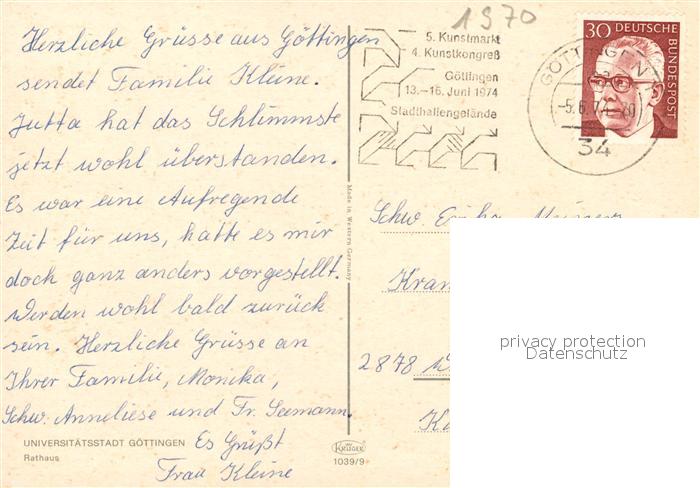 Herzliche Grüsse aus Göttingen
sendet Familie Kleine.
Jutta hat das Schlimmste
jetzt wohl überstanden.
Es war eine Aufregende
Zeit für uns, hatte es mir
doch ganz anders vorgestellt.
Werden wohl bald zurück
sein. Herzliche Grüsse an
Ihrer Familie, Monika,
Schw. Anneliese und Fr. Seemann.
Es Grüßt
Frau Kleine
UNIVERSITÄTSSTADT GÖTTINGEN
Rathaus
Made in Western Germany
KRÜGER
1039/9
1970
5. Kunstmarkt
4. Kunstkongreß
Göttingen
13.–16. Juni 1974
Stadthallengelände
GÖTTINGEN
-5.6.74
34
30 DEUTSCHE
BUNDESPOST
Schw.
Kran
2878
privacy protection
Datenschutz